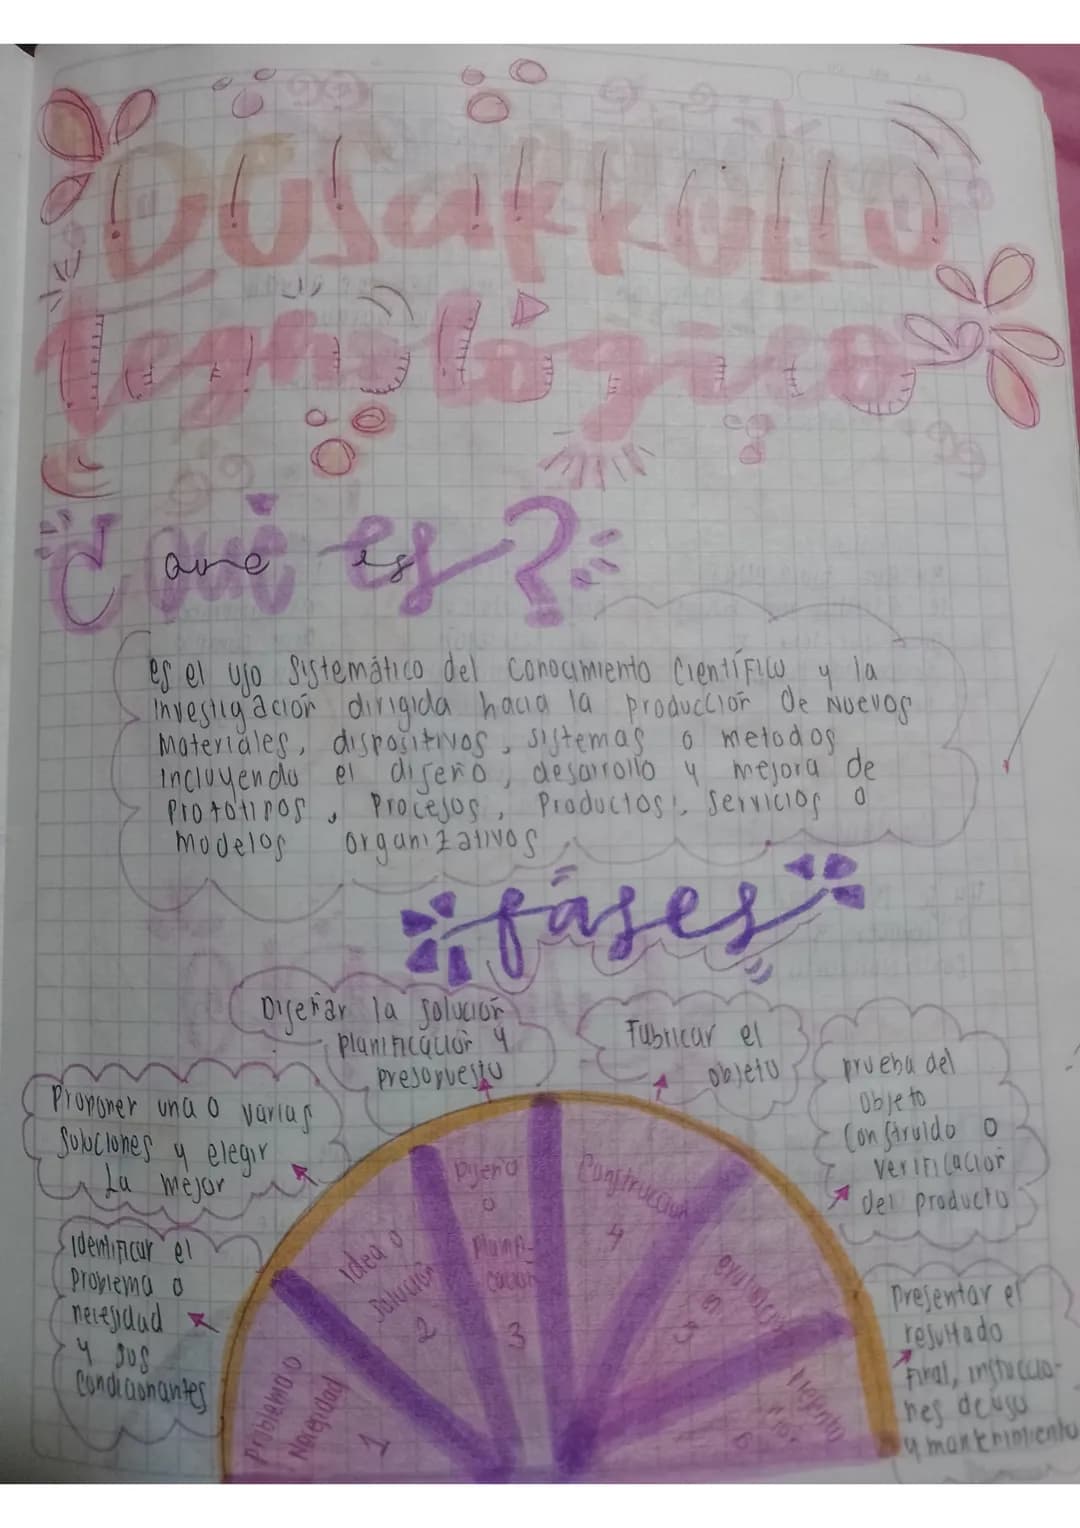 Desarrollo
tegnológico
¿ que es ?
es el uso sistemático del conocimiento científico y la
investigación dirigida hacia la producción de nuevos
Materiales, dispositivos, sistemas o metodos
incluyendo el diseño, desarrollo y mejora de
Prototipos, Procesos, Productos, servicios o
modelos organizativos
fases
Diseñar la solución
planificación y
presopuesto
Fabricar el
objeto
prueba del
objeto
construido o
verificación
del producto
Proponer una o varias
soluciones y elegir
La mejor
identificar el
problema o
necesidad
y sus
condicionantes
Presentar el
resultado
final, instruccio-
nes de uso
y mantenimiento
Problema o
Necesidad
1
idea o
solución
2
Diseño
o
Planifi-
cación
3
Construcción
4
evaluación
5
6